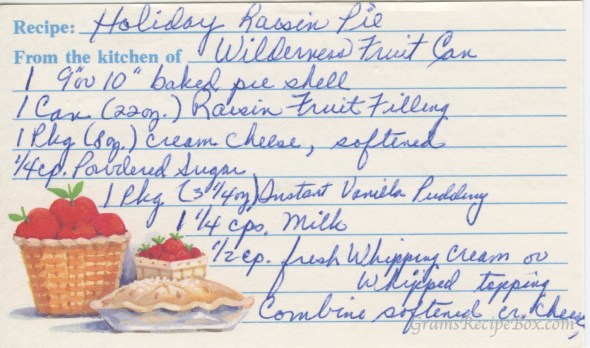 Recipe: Holiday Raisin Pie
From the kitchen of Wilderness Fruit Can
1 9" or 10" baked pie shell
1 Can (22oz.) Raisin Fruit Filling
1 Pkg (8oz.) cream cheese, softened
1/4 cp. Powdered Sugar
1 Pkg (3 1/4 oz) Instant Vanilla Pudding
1 1/4 cps. Milk
1/2 cp. fresh Whipping cream or
Whipped topping
Combine softened cr. cheese,
GramsRecipeBox.com